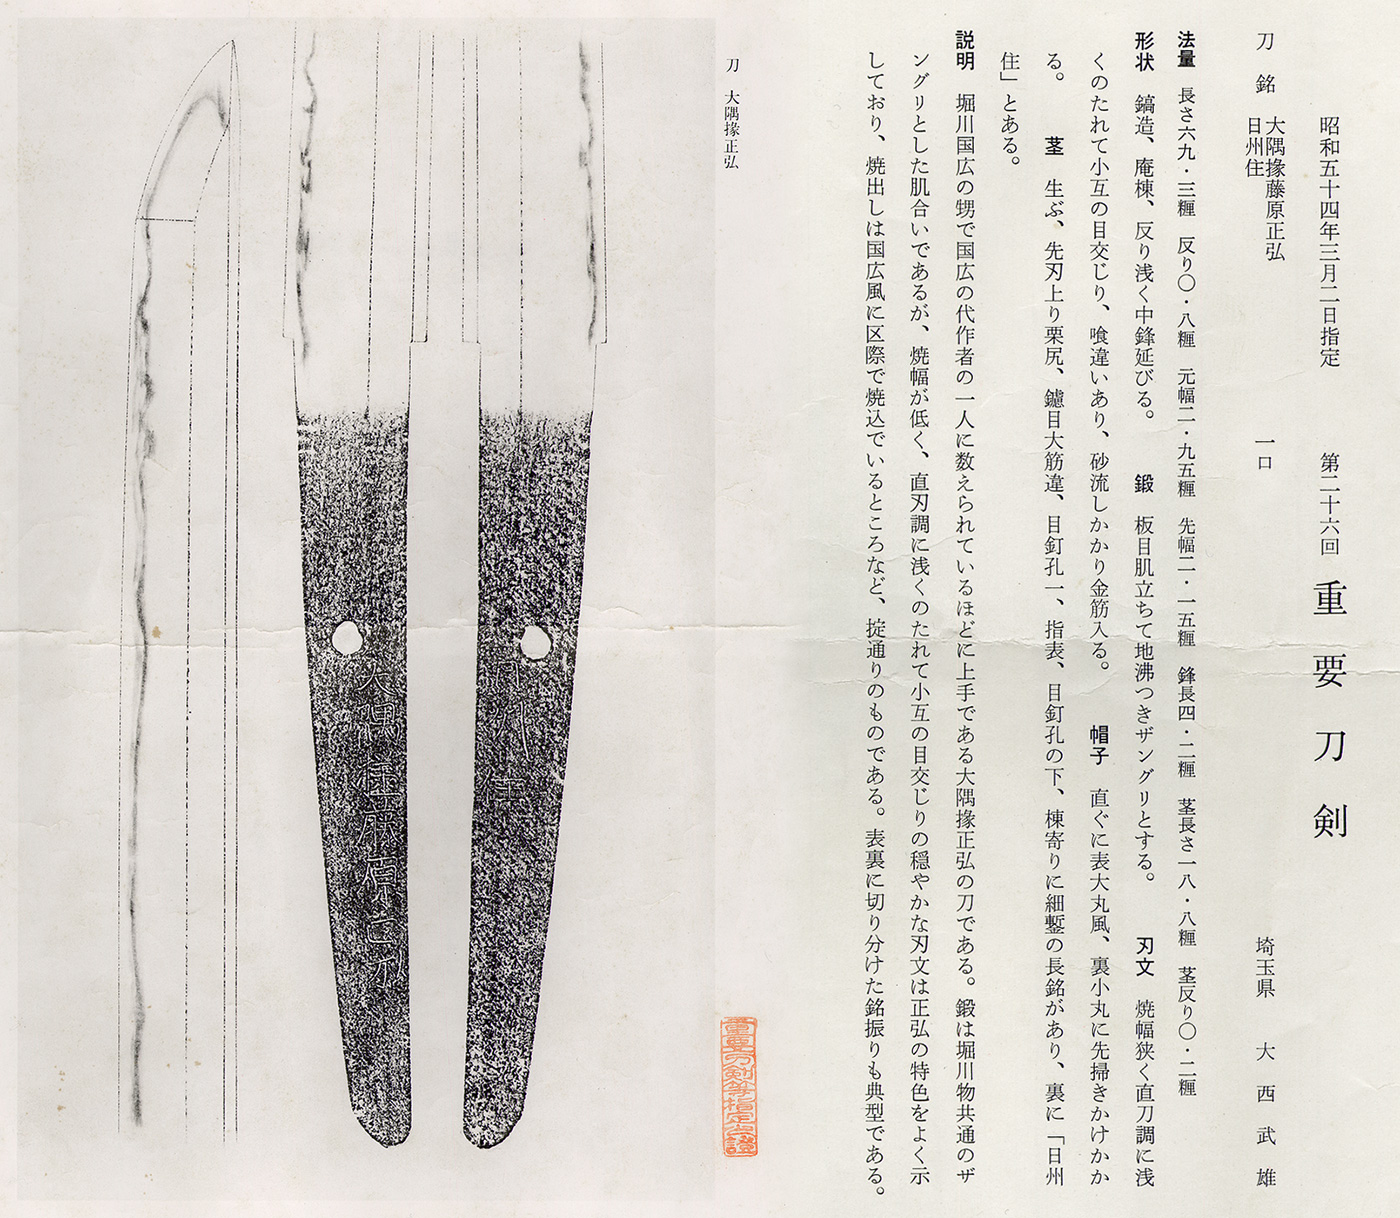 昭和五十四年三月二日指定　第二十六回　重要刀剣
刀　銘　大隅掾藤原正弘
日州住
一口　埼玉県　大西武雄
法量　長さ六九・三糎　反り〇・八糎　元幅二・九五糎　先幅二・一五糎　鋒長四・二糎　茎長さ一八・八糎　茎反り〇・二糎
形状　鎬造、庵棟、反り浅く中鋒延びる。　鍛　板目肌立ちて地沸つきザングリとする。　刃文　焼幅狭く直刀調に浅
くのたれて小互の目交じり、喰違いあり、砂流しかかり金筋入る。　帽子　直ぐに表大丸風、裏小丸に先掃きかけかか
る。　茎　生ぶ、先刃上り栗尻、鑢目大筋違、目釘孔一、指表、目釘孔の下、棟寄りに細鏨の長銘があり、裏に「日州
住」とある。
説明　堀川国広の甥で国広の代作者の一人に数えられているほどに上手である大隅掾正弘の刀である。鍛は堀川物共通のザ
ングリとした肌合いであるが、焼幅が低く、直刃調に浅くのたれて小互の目交じりの穏やかな刃文は正弘の特色をよく示
しており、焼出しは国広風に区際で焼込でいるところなど、掟通りのものである。表裏に切り分けた銘振りも典型である。
刀　大隅掾正弘
重要刀剣等指定之證
日州住
大隅掾藤原正弘